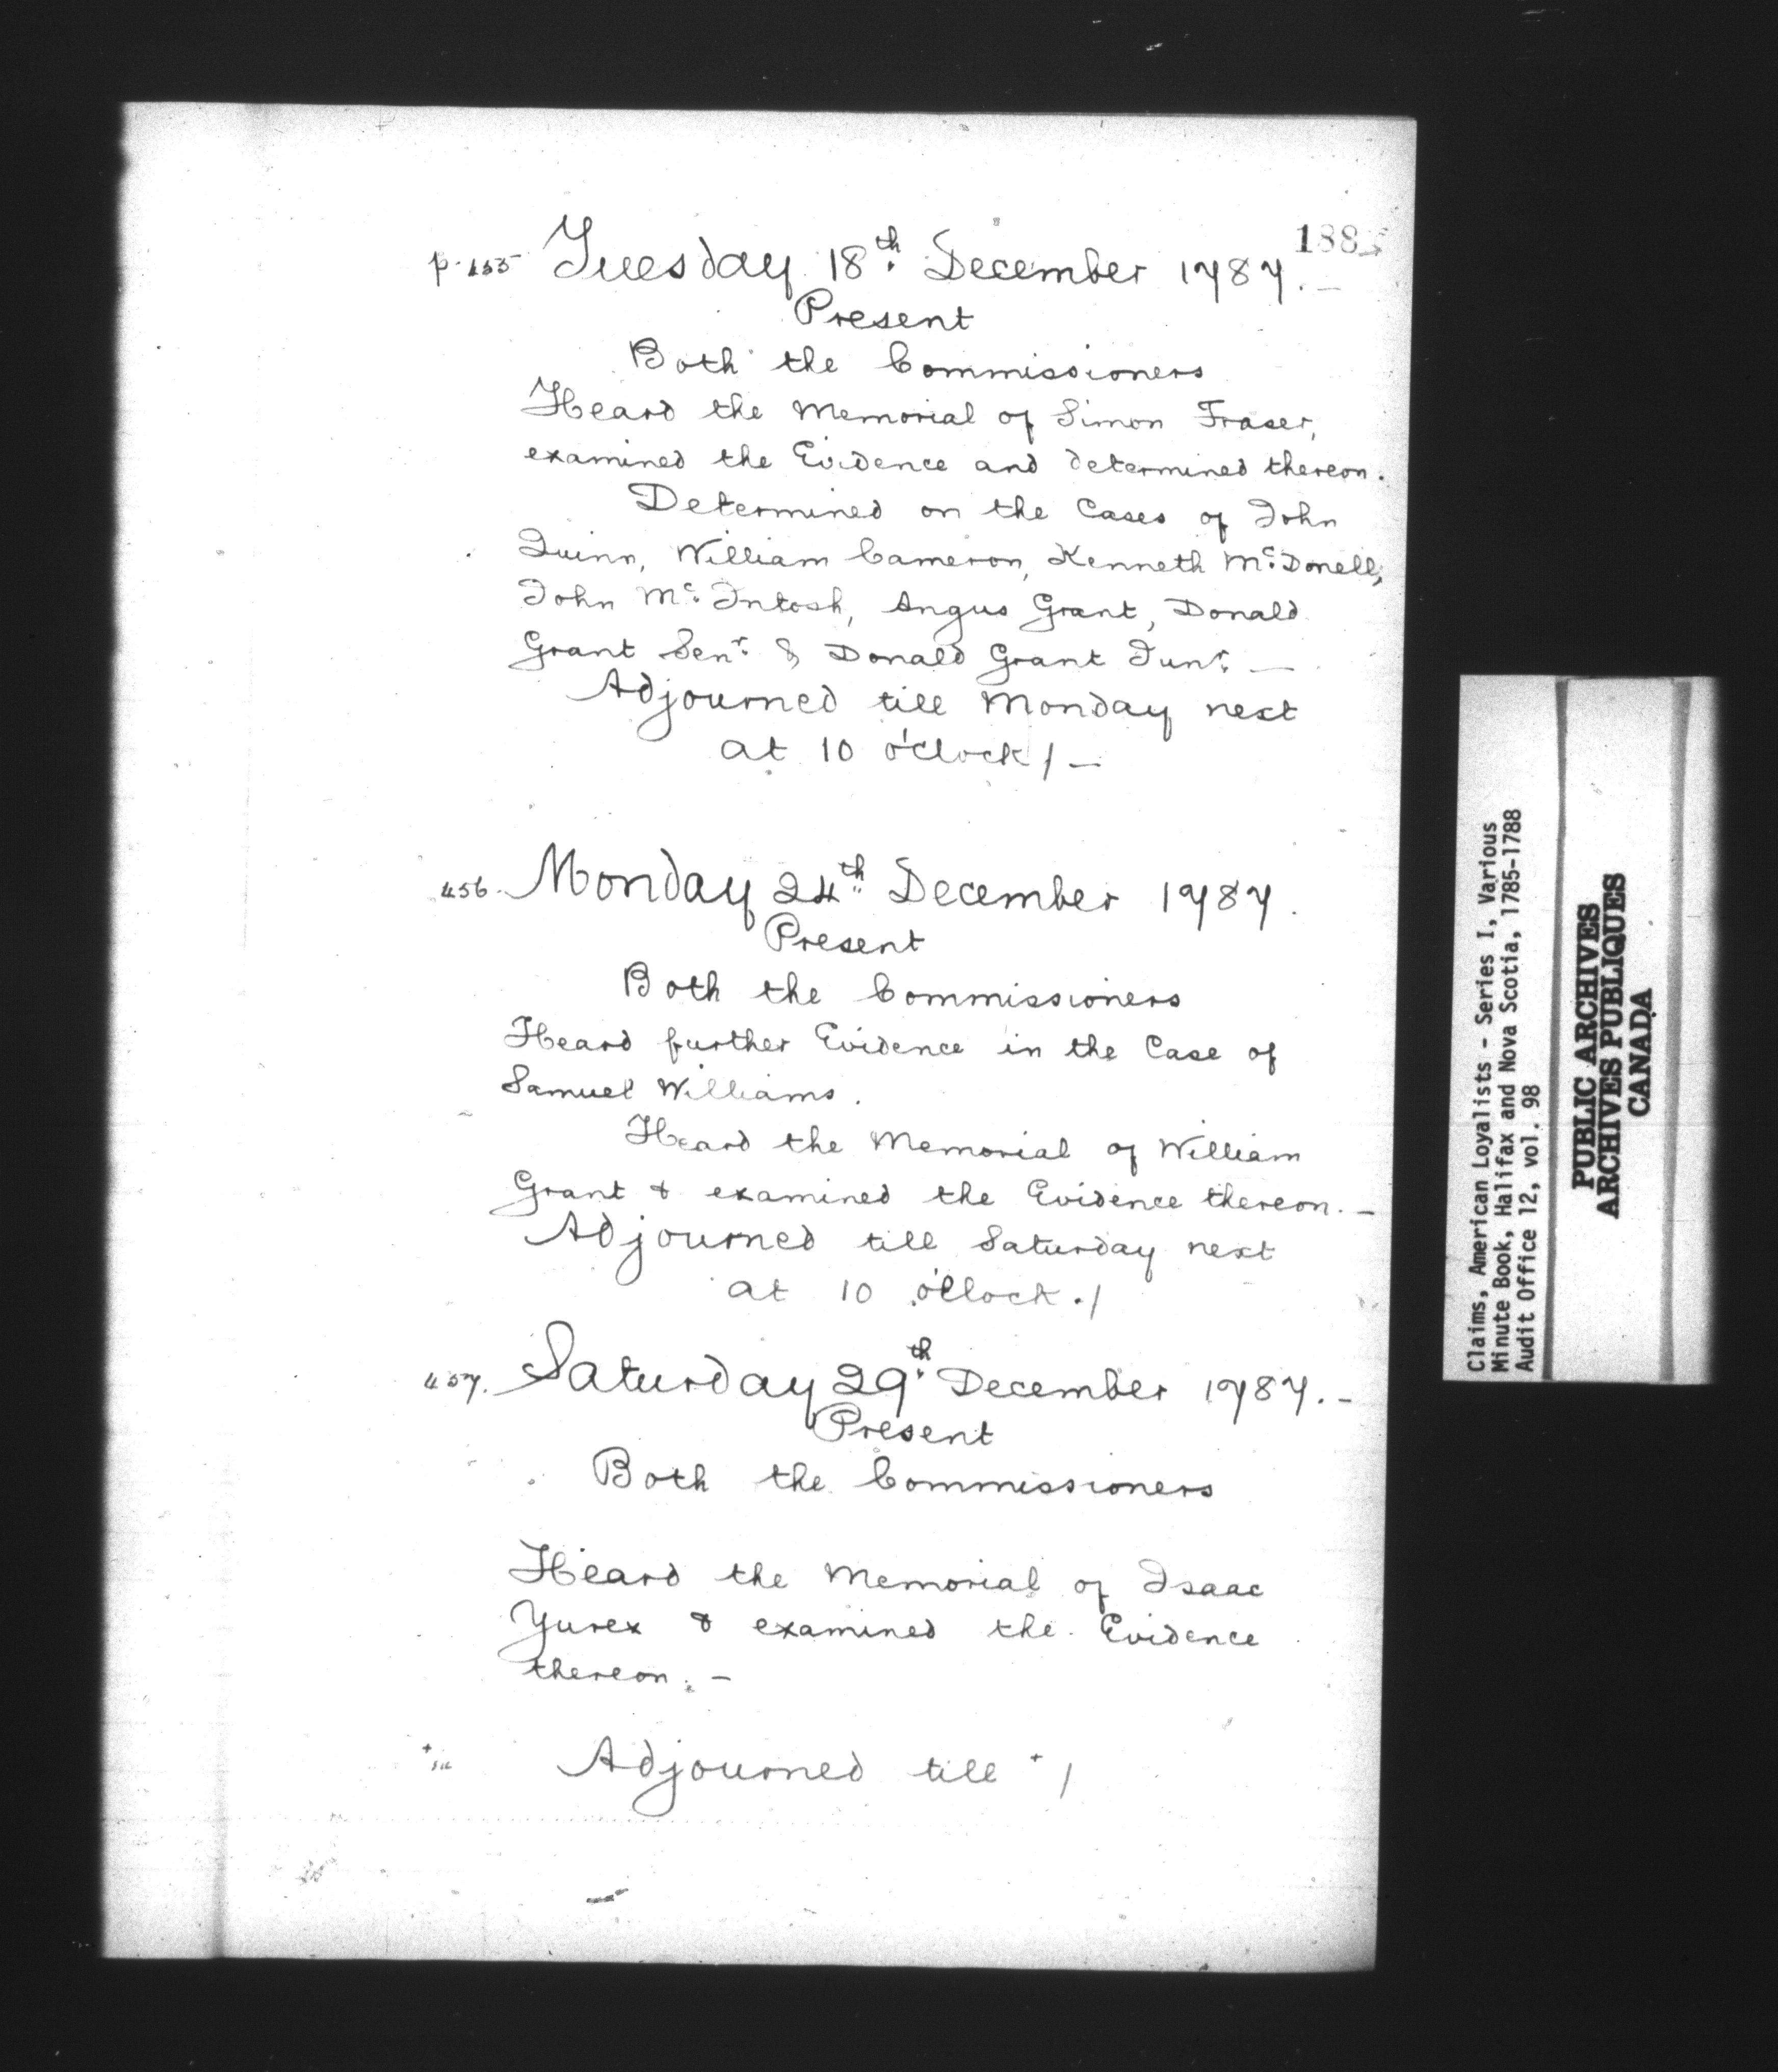 188
p. 455 Tuesday 18th. December 1787. —
Present
Both the Commissioners
Heard the Memorial of Simon Fraser,
examined the Evidence and determined thereon.
Determined on the Cases of John
Quinn, William Cameron, Kenneth Mc. Donell,
John Mc. Intosh, Angus Grant, Donald
Grant Senr. & Donald Grant Junr. —
Adjourned till Monday next
at 10 o'Clock / —
456. Monday 24th. December 1787.
Present
Both the Commissioners
Heard further Evidence in the Case of
Samuel Williams.
Heard the Memorial of William
Grant & examined the Evidence thereon. —
Adjourned till Saturday next
at 10 o'Clock. /
457. Saturday 29th. December 1787. —
Present
Both the Commissioners
Heard the Memorial of Isaac
Yurex & examined the Evidence
thereon. —
+ sic Adjourned till + /
Claims, American Loyalists - Series I, Various
Minute Book, Halifax and Nova Scotia, 1785-1788
Audit Office 12, vol. 98
PUBLIC ARCHIVES
ARCHIVES PUBLIQUES
CANADA